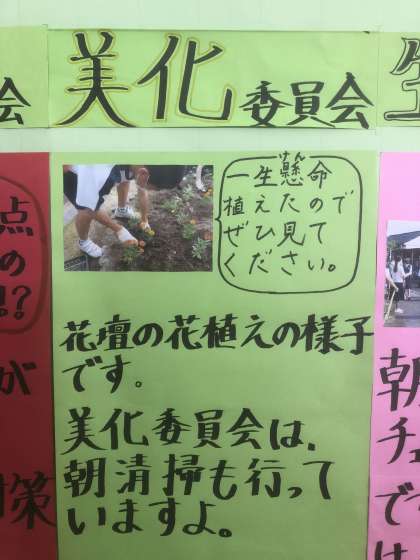 会
美化委員会
生
点
の
!?
が
策
一生懸命
けん
植えたので
ぜひ見て
ください。
花壇の花植えの様子
です。
美化委員会は、
朝清掃も行って
いますよ。
朝
チェ
で
は